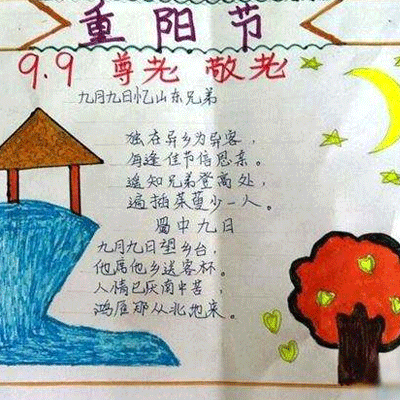 重阳节
9.9 尊老 敬老
九月九日忆山东兄弟
独在异乡为异客，
每逢佳节倍思亲。
遥知兄弟登高处，
遍插茱萸少一人。
蜀中九日
九月九日望乡台，
他席他乡送客杯。
人情已厌南中苦，
鸿雁那从北地来。